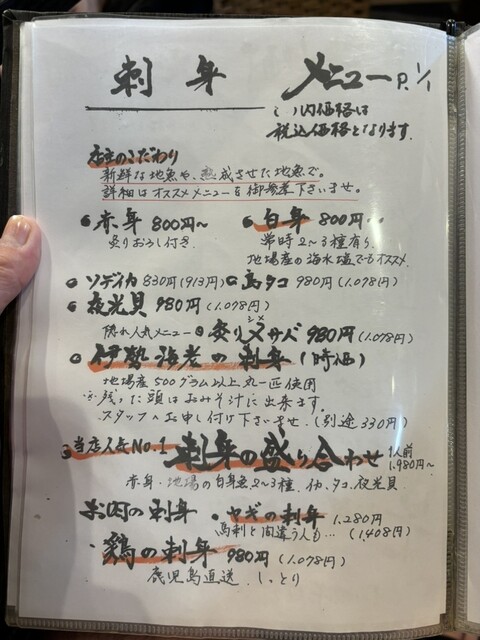 刺身 メニュー P. 1/1
( )内価格は
税込価格となります.
店主のこだわり
新鮮な地魚や、熟成させた地魚で。
詳細はオススメメニューを御参考下さいませ。
赤身 800円~
炙りおろし付き.
白身 800円~
常時2~3種有り.
地場産の海水塩でもオススメ.
ソデイカ 830円(913円)
島タコ 980円(1.078円)
夜光貝 980円(1.078円)
隠れ人気メニュー 炙り〆サバ 980円(1.078円)
シメ
伊勢海老の刺身 (時価)
地場産 500グラム以上 丸一匹使用
※残った頭はおみそ汁に出来ます.
スタッフへお申し付け下さいませ. (別途 330円)
当店人気No.1 刺身の盛り合わせ 1人前 1.980円~
赤身・地場の白身魚2~3種. イカ、タコ、夜光貝
お肉の刺身
・ヤギの刺身 1.280円
馬刺と間違う人も… (1.408円)
・鶏の刺身 980円(1.078円)
鹿児島直送. しっとり